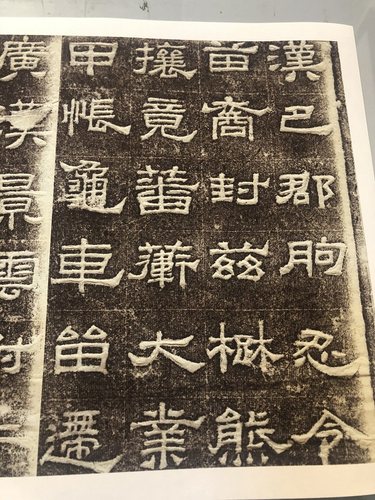 漢巴郡朐忍令
苗裔封茲楚熊
攘竟蕃衛大業
甲帳龜車留遰
廣漢景雲